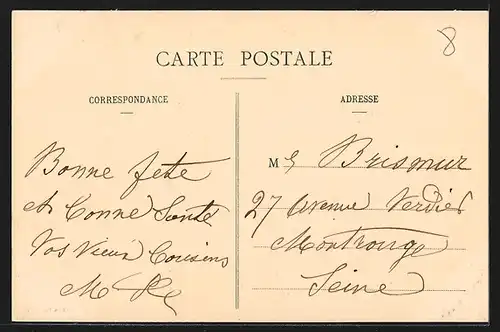 8
CARTE POSTALE
CORRESPONDANCE
ADRESSE
Bonne fete
et bonne Santé
Vos vieux Cousins
M
M Brismur
27 avenue Verdier
Montrouge
Seine